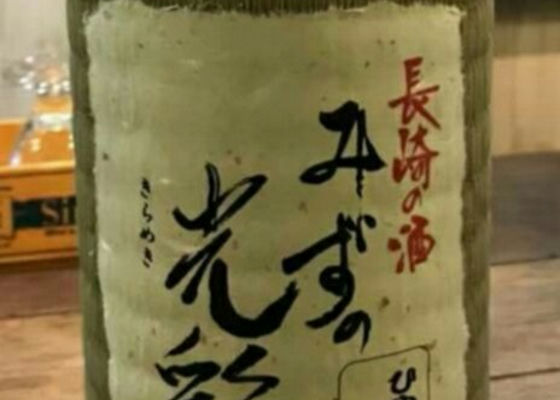 長崎の酒
みずの
光彩
きらめき
ひ